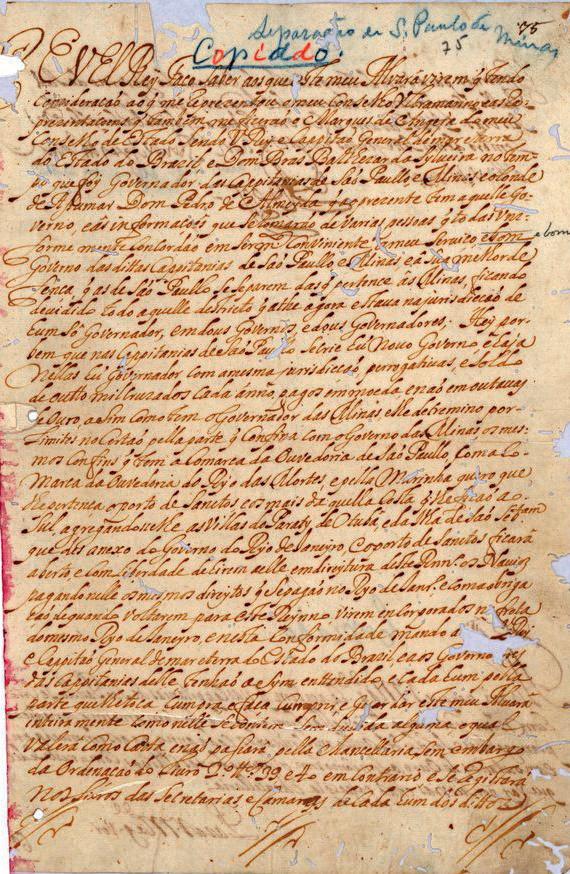 Separação de S. Paulo da Minas
75
Copiado
EU ElRey Faço saber aos que este meu Alvara virem q tendo
consideração ao q me representou o meu Conselho Ultramarino e as Re
prezentaçoens q tambem me fizerão o Marques de Angeja do meu
Conselho de Estado sendo V Rey e Capitão General de mar e terra
do Estado do Brazil e Dom Bras Balthezar da Sylveira no tem
po que foy Governador das Capitanias de São Paullo e Minas e o Conde
de Assumar Dom Pedro de Almeida q ao prezente tem aquelle Go
verno, e as informaçoes que se tomarão de varias pessoas q todas Uni
forme mente Concordão em ser m Conviniente a meu Serviço, e bom
Governo das dittas Capitanias de São Paullo e Minas e a sua melhor de
fença q as de São Paullo se separem das q pertence as Minas, ficando
devidido todo aquelle destricto q athe agora estava na jurisdicção de
hum só Governador, em dous Governos, e dous Governadores; Hey por
bem que nas Capitanias de São Paulo se crie hũ Novo Governo e haja
nellas hũ Governador com a mesma jurisdicção, perrogativas, e soldo
de outto mil cruzados cada anno, pagos em moeda e não em outavas
de Ouro, assim como tem o Governador das Minas e lhe detremino por
Limites no Certão pella parte q Confina com o Governo das Minas os mes
mos confins q tem a Comarca da Ouvedoria de São Paulo, com a Co
Marca da Ouvedoria do Ryo das Mortes e pella Marinha quero que
lhe pertença o porto de Santos e os mais da quella Costa q lhe ficão ao
Sul, agregandoselhe as Villas de Paraty de Ubatuba, e da Ilha de São Sebastiam
que des anexo do Governo do Ryo de Janeyro, e o porto de Santos ficará
aberto, e com liberdade de hirem a elle em direytura deste Reyno os Navios
pagando nelle os mesmos direytos q se pagão no Ryo de Janr.º e com a obriga
ção de quando voltarem para este Reynno virem encorporados na frota
do mesmo Ryo de Janeyro, e nesta Conformidade mando ao V Rey
e Capitão General de mar e terra do Estado do Brazil, e aos Governo res
das Capitanias delle tenhão assim entendido, e Cada hum pella
parte que lhe toca Cumpra e faça Cumprir e Goardar este meu Alvará
inteiramente como nelle se contem sem duvida alguma o qual
valera como Carta e não passará pella Chancellaria sem embargo
da Ordenação do Livro 2.º tt.º 39 e 40 em contrario e se registará
nos livros das Secretarias e Camaras de Cada hum dos dittos